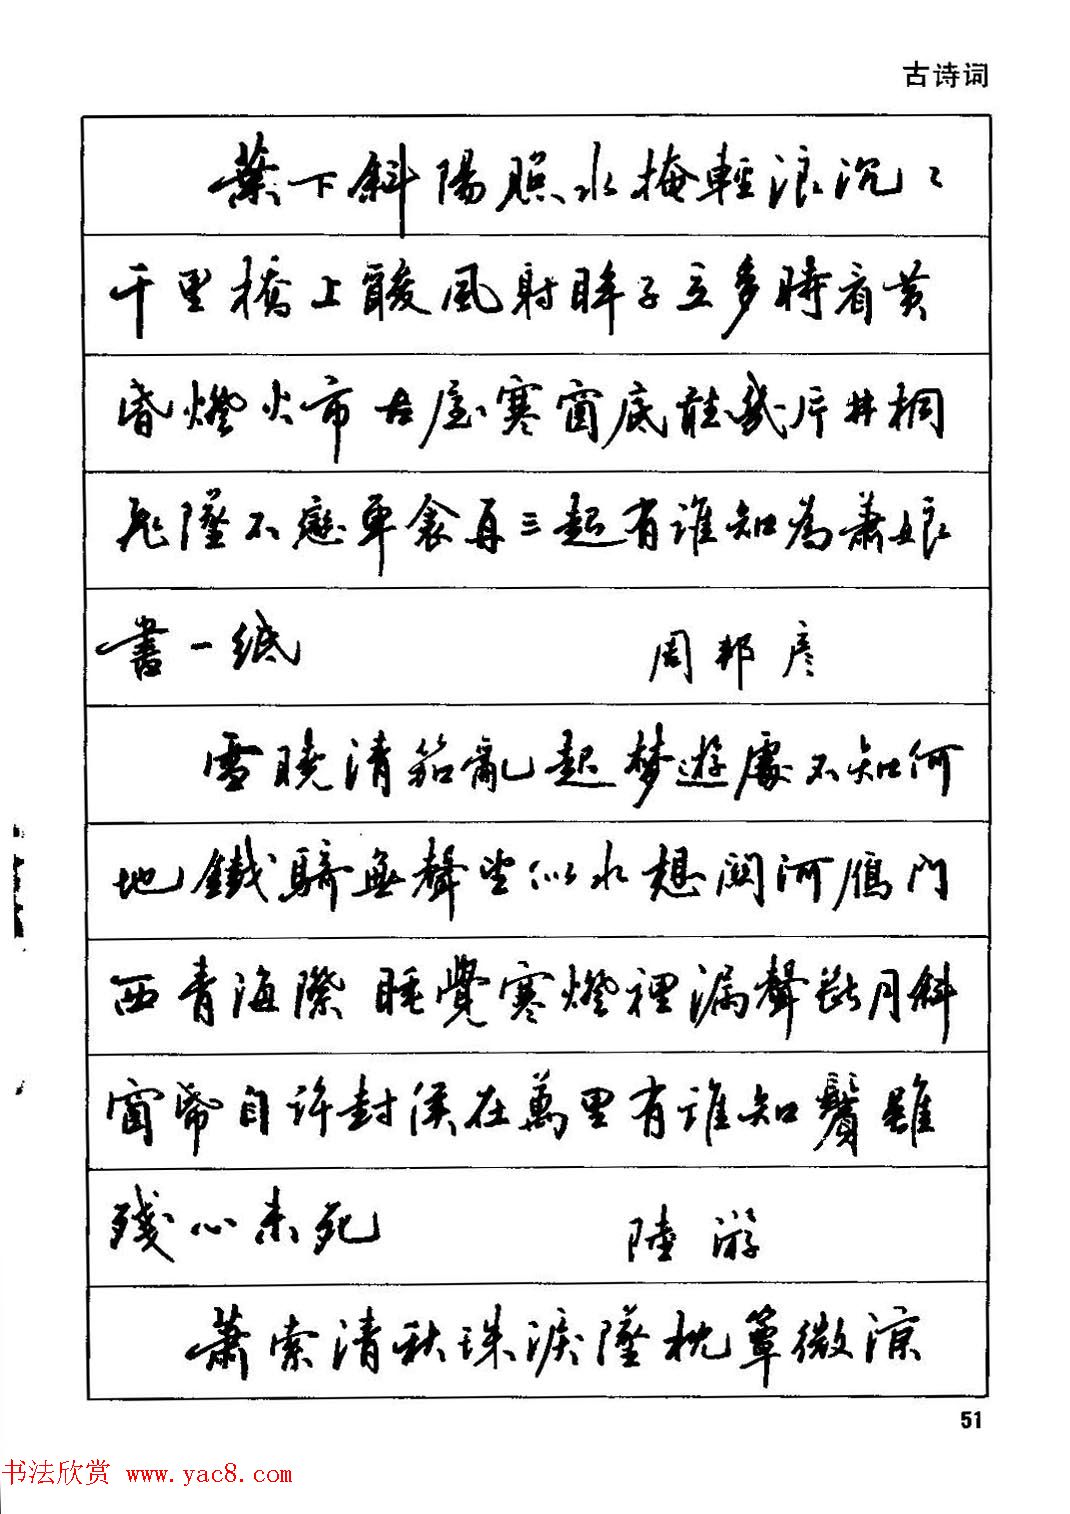 古诗词
葉下斜陽照水掩輕浪沉〻
千里橋上酸風射眸子立多時看黄
昏燈火市古屋寒窗底聽幾片井桐
飛墜不戀單衾再三起有誰知為蕭娘
書一紙 周邦彦
雪曉清笳亂起梦遊處不知何
地鐵騎無聲望似水想関河雁门
西青海際睡覺寒燈裡漏聲斷月斜
窗帋自许封侯在萬里有谁知鬢雖
殘心未死 陸游
蕭索清秋珠淚墜枕簟微涼
51
书法欣赏 www.yac8.com